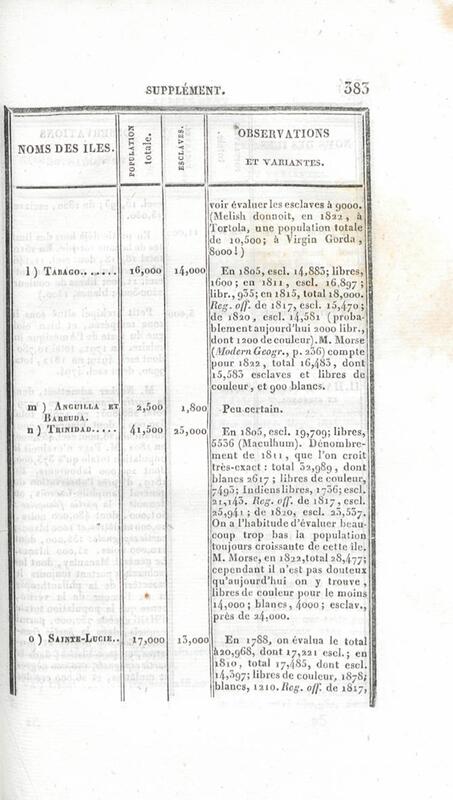 SUPPLÉMENT. 383
NOMS DES ILES.
POPULATION
totale.
ESCLAVES.
OBSERVATIONS
ET VARIANTES.
voir évaluer les esclaves à 9000.
(Melish donnoit, en 1822, à
Tortola, une population totale
de 10,500; à Virgin Gorda,
8000!)
l) TABAGO....... 16,000 14,000 En 1805, escl. 14,883; libres,
1600; en 1811, escl. 16,897;
libr., 935; en 1815, total 18,000.
Reg. off. de 1817, escl. 15,470;
de 1820, escl. 14,581 (proba-
blement aujourd'hui 2000 libr.,
dont 1200 de couleur). M. Morse
(Modern Geogr., p. 236) compte
pour 1822, total 16,483, dont
15,583 esclaves et libres de
couleur, et 900 blancs.
m) ANGUILLA ET 2,500 1,800 Peu certain.
BARBUDA.
n) TRINIDAD..... 41,500 25,000 En 1805, escl. 19,709; libres,
5536 (Maculhum). Dénombre-
ment de 1811, que l'on croit
très-exact: total 32,989, dont
blancs 2617; libres de couleur,
7493; Indiens libres, 1736; escl.
21,143. Reg. off. de 1817, escl.
25,941; de 1820, escl. 23,537.
On a l'habitude d'évaluer beau-
coup trop bas la population
toujours croissante de cette île.
M. Morse, en 1822, total 28,477;
cependant il n'est pas douteux
qu'aujourd'hui on y trouve,
libres de couleur pour le moins
14,000; blancs, 4000; esclav.,
près de 24,000.
o) SAINTE-LUCIE.. 17,000 13,000 En 1788, on évalua le total
à 20,968, dont 17,221 escl.; en
1810, total 17,485, dont escl.
14,397; libres de couleur, 1878;
blancs, 1210. Reg. off. de 1817,